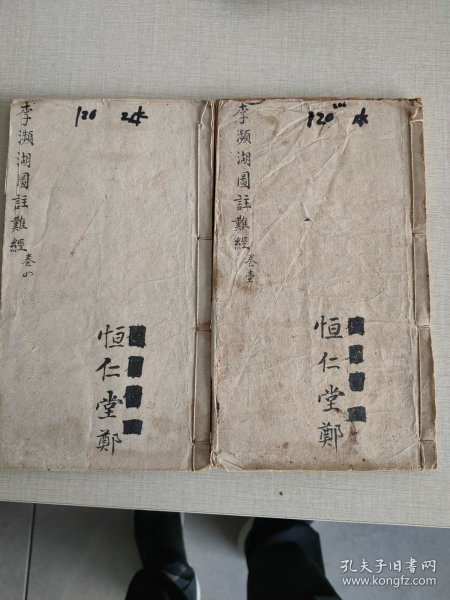 120 24本
李瀕湖圖註難經 卷四
恒仁堂鄭
120 本
李瀕湖圖註難經 卷壹
恒仁堂鄭
孔夫子旧书网
www.kongfz.com